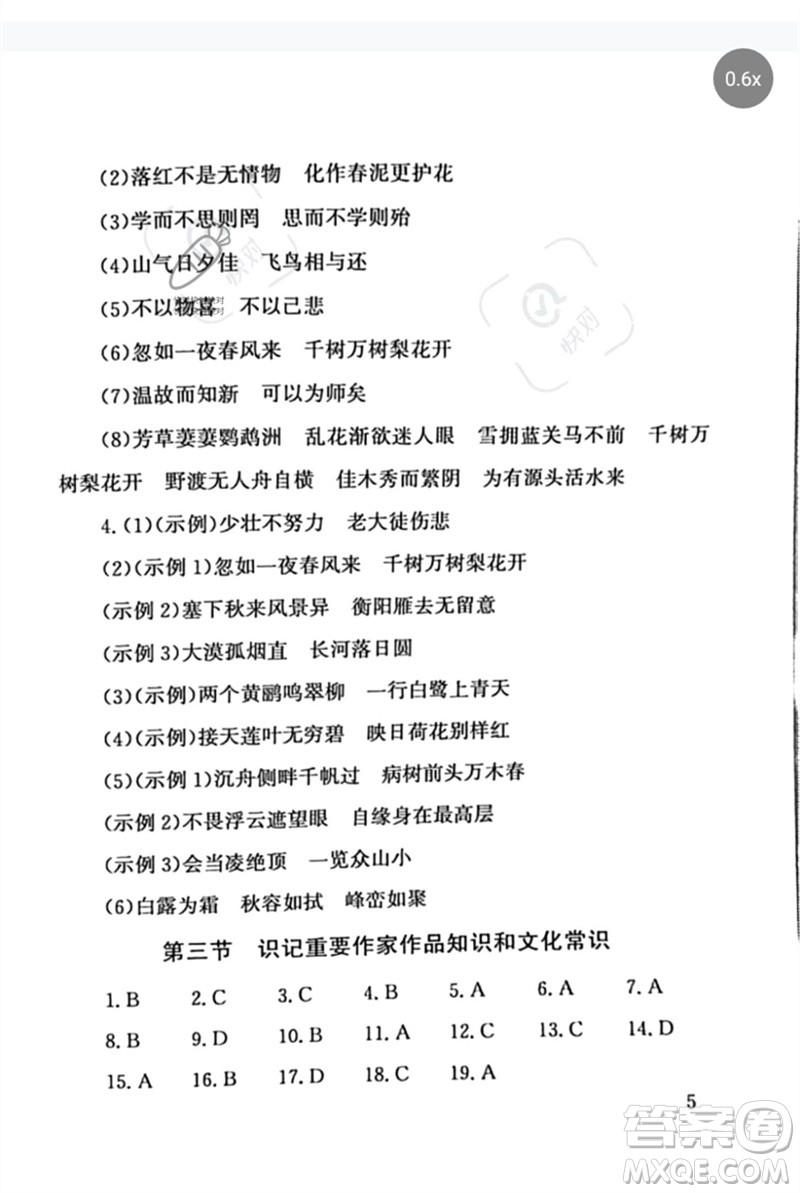 0.6x
(2)落红不是无情物　化作春泥更护花
(3)学而不思则罔　思而不学则殆
(4)山气日夕佳　飞鸟相与还
(5)不以物喜　不以己悲
(6)忽如一夜春风来　千树万树梨花开
(7)温故而知新　可以为师矣
(8)芳草萋萋鹦鹉洲　乱花渐欲迷人眼　雪拥蓝关马不前　千树万
树梨花开　野渡无人舟自横　佳木秀而繁阴　为有源头活水来
4.(1)(示例)少壮不努力　老大徒伤悲
(2)(示例1)忽如一夜春风来　千树万树梨花开
(示例2)塞下秋来风景异　衡阳雁去无留意
(示例3)大漠孤烟直　长河落日圆
(3)(示例)两个黄鹂鸣翠柳　一行白鹭上青天
(4)(示例)接天莲叶无穷碧　映日荷花别样红
(5)(示例1)沉舟侧畔千帆过　病树前头万木春
(示例2)不畏浮云遮望眼　自缘身在最高层
(示例3)会当凌绝顶　一览众山小
(6)白露为霜　秋容如拭　峰峦如聚
第三节　识记重要作家作品知识和文化常识
1.B　2.C　3.C　4.B　5.A　6.A　7.A
8.B　9.D　10.B　11.A　12.C　13.C　14.D
15.A　16.B　17.D　18.C　19.A
5
快对
快对
答案圈
MXQE.COM